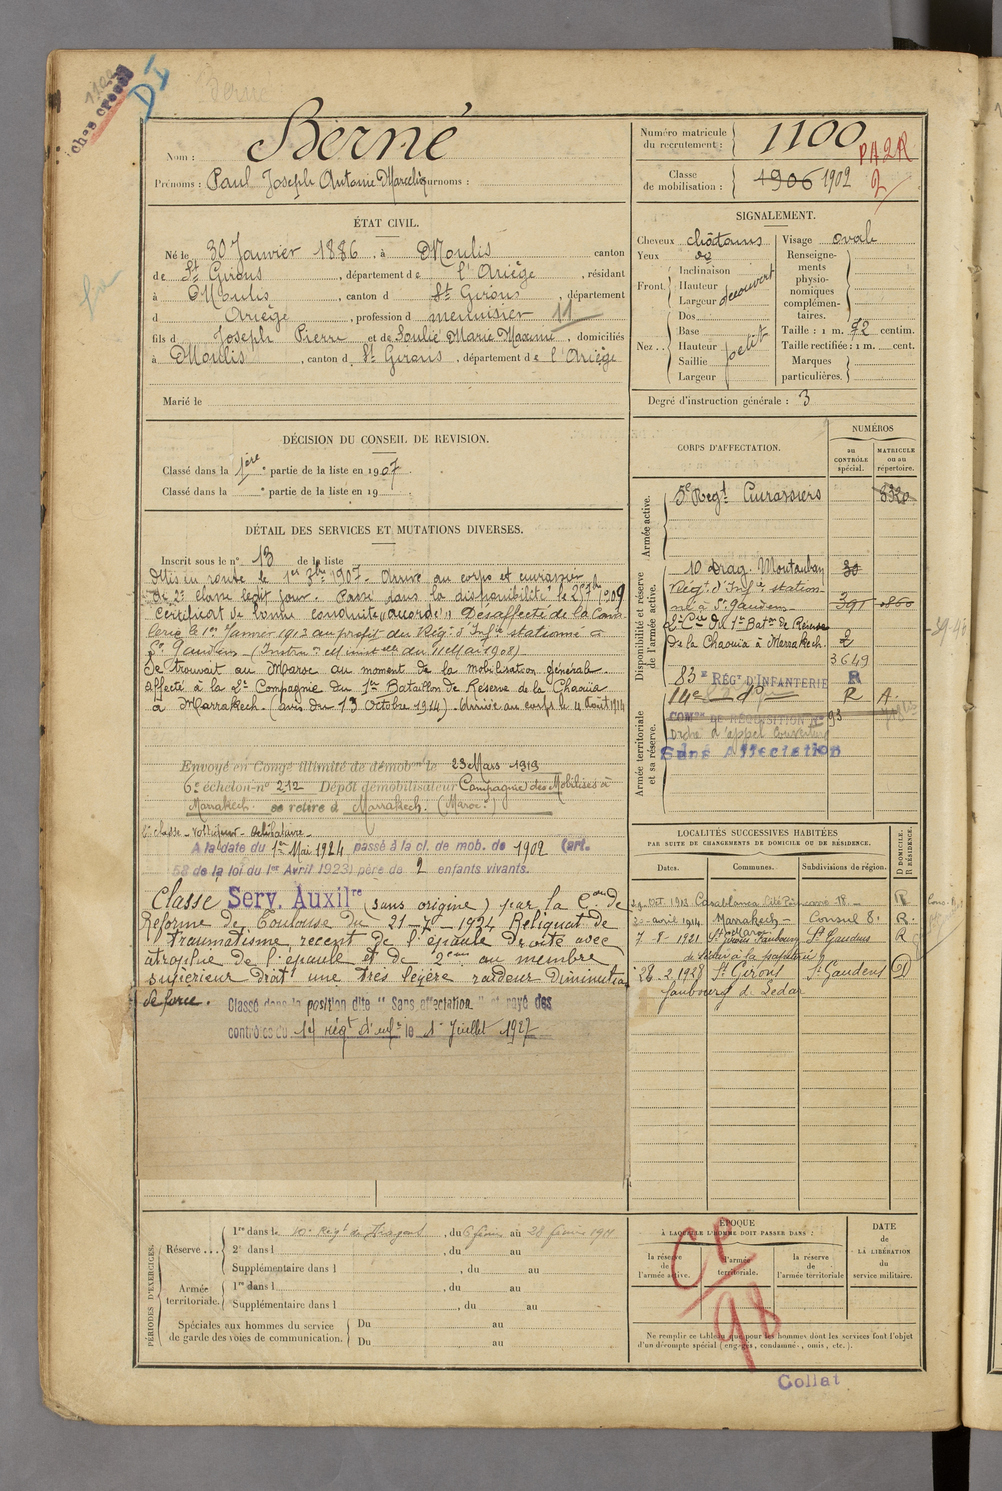 Berné
Nom : Berné
Prénoms : Paul Joseph Antonin Marcelin Surnoms :
Numéro matricule du recrutement : 1100
PA2R
Classe de mobilisation : 1906 1902
2
ÉTAT CIVIL.
Né le 30 Janvier 1886, à Moulis canton
de St Girons, département de l'Ariège, résidant
à Moulis, canton d St Girons, département
d Ariège, profession d menuisier 11
fils d Joseph Pierre et de Soulié Marie Maxime, domiciliés
à Moulis, canton d St Girons, département de l'Ariège
Marié le
SIGNALEMENT.
Cheveux châtains
Yeux
Front. Inclinaison
Hauteur
Largeur
découvert
Nez.. Dos
Base
Hauteur
Saillie
Largeur
petit
Visage ovale
Renseignements physionomiques complémentaires.
Taille : 1 m. 72 centim.
Taille rectifiée : 1 m. cent.
Marques particulières.
Degré d'instruction générale : 3
DÉCISION DU CONSEIL DE REVISION.
Classé dans la 1ère partie de la liste en 1907.
Classé dans la e partie de la liste en 19
DÉTAIL DES SERVICES ET MUTATIONS DIVERSES.
Inscrit sous le n° 13 de la liste
Mis en route le 1er 8bre 1907. Arrivé au corps et cuirassier
de 2e classe ledit jour. Passé dans la disponibilité le 25 7bre 1909
Certificat de bonne conduite "accordé". Désaffecté de la Cava
lerie le 1er Janvier 1912 au profit du Régt d'Infie stationné à
St Gaudens (Instron Ministelle du 11 Mai 1908)
Se trouvait au Maroc au moment de la mobilisation générale
affecté à la 2e Compagnie du 1er Bataillon de Réserve de la Chaouïa
à Marrakech. (avis du 13 Octobre 1914). Arrivé au corps le 4 Août 1914
Envoyé en Congé illimité de démobon le 23 Mars 1919
6e échelon n° 212 Dépôt démobilisateur Compagnie des Mobilisés à
Marrakech. se retire à Marrakech. (Maroc)
A la date du 1er Mai 1924 passé à la cl. de mob. de 1902 (art.
58 de la loi du 1er Avril 1923) père de 2 enfants vivants.
Classé Serv. Auxilre (sans origine) par la Con de
Réforme de Toulouse du 21-7-1924 Reliquat de
traumatisme récent de l'épaule droite avec
atrophie de l'épaule et de 2cm au membre
supérieur droit une très légère raideur Diminution
de force. Classé dans la position dite "Sans affectation" et rayé des
contrôles du 14 régt d'infie le 1er Juillet 1927
CORPS D'AFFECTATION.
NUMÉROS
au CONTRÔLE spécial.
MATRICULE ou au répertoire.
Armée active.
5e Regt Cuirassiers 8320
Disponibilité et réserve de l'armée active.
10 Drag. Montauban 30
Régt d'Infie station-
né à St Gaudens 391 0860
2e Cie du 1er Baton de Réserve
de la Chaouïa à Marrakech. 2
3649
83e RÉGt D'INFANTERIE R
14e do R A.
Armée territoriale et sa réserve.
COMon DE RÉQUISITION N° 93
Ordre d'appel Couverture
Sans Affectation
LOCALITÉS SUCCESSIVES HABITÉES
PAR SUITE DE CHANGEMENTS DE DOMICILE OU DE RÉSIDENCE.
Dates. Communes. Subdivisions de région. D DOMICILE. R RÉSIDENCE.
29 Oct. 1913 Casablanca R
20 avril 1914 Marrakech - Maroc Consul R
7-8-1921 St Girons Faubourg St Gaudens R
de Sédar à la papeterie
28.2.1928 St Girons St Gaudens D
faubourg d. Sédar
PÉRIODES D'EXERCICES.
Réserve... 1re dans le 10e Régt de Dragons, du 6 février au 28 février 1911
2e dans l , du au
Supplémentaire dans l , du au
Armée territoriale. 1re dans l , du au
Supplémentaire dans l , du au
Spéciales aux hommes du service de garde des voies de communication. Du au
Du au
ÉPOQUE
À LAQUELLE L'HOMME DOIT PASSER DANS :
la réserve de l'armée active.
l'armée territoriale.
la réserve de l'armée territoriale
DATE de LA LIBÉRATION du service militaire.
Ce 98
Ne remplir ce tableau que pour les hommes dont les services font l'objet
d'un décompte spécial (engagés, condamnés, omis, etc.).
Collat